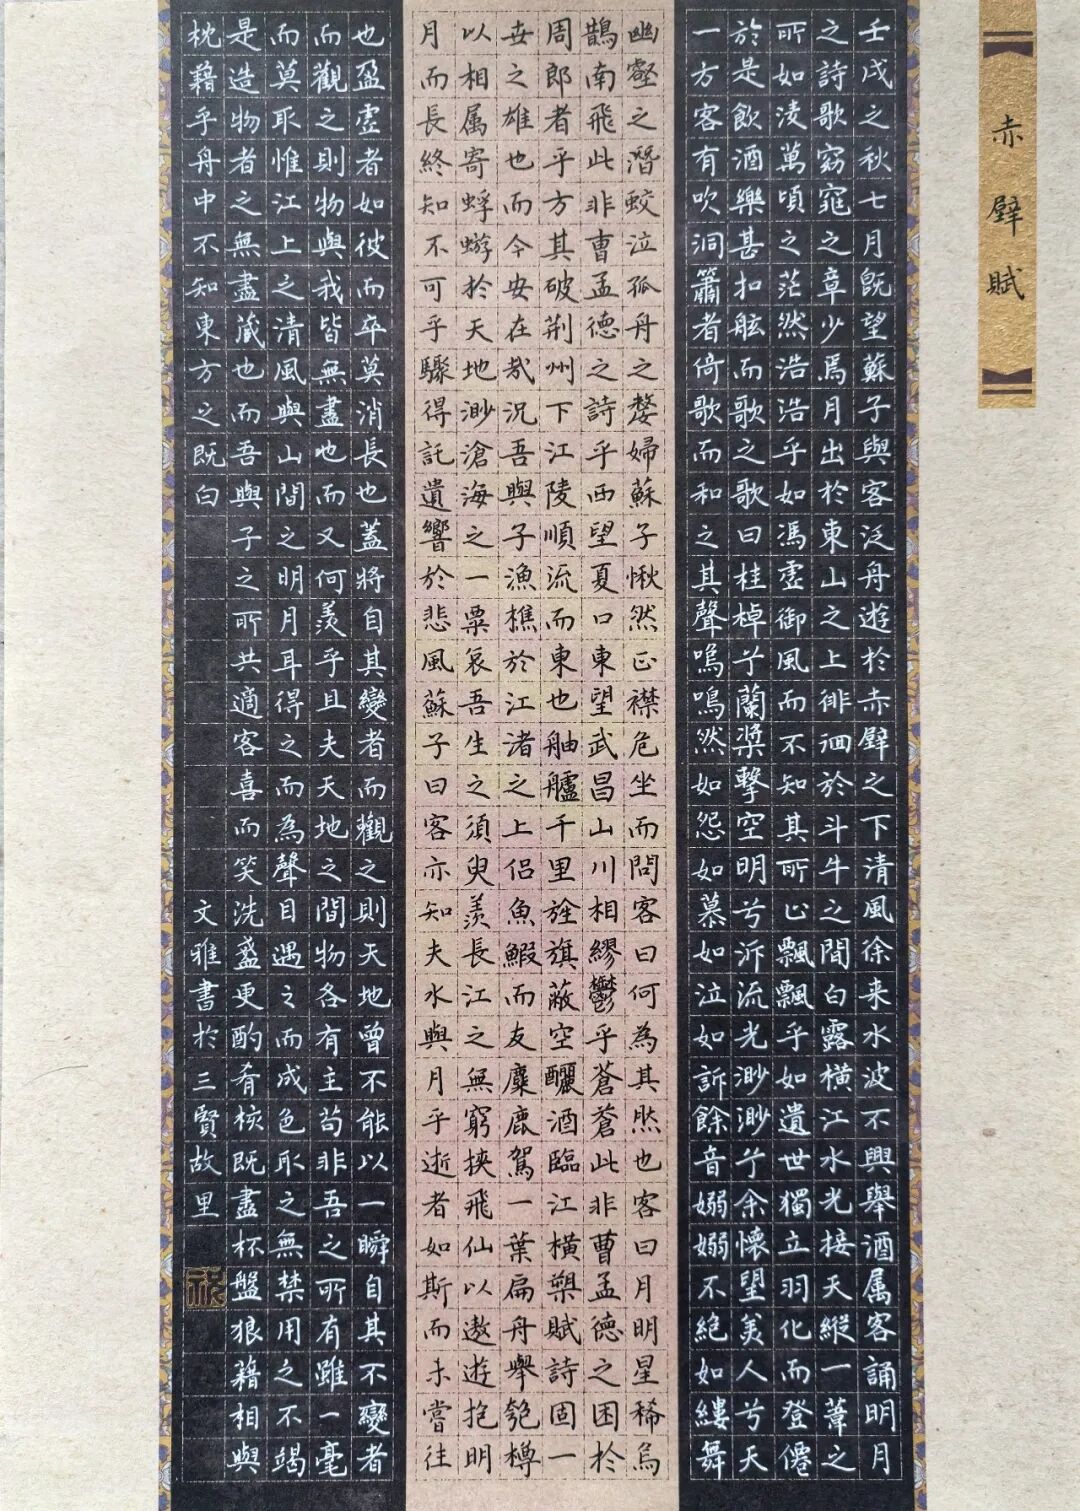 赤壁賦
壬戌之秋七月既望蘇子與客泛舟遊於赤壁之下清風徐来水波不興舉酒属客誦明月
之詩歌窈窕之章少焉月出於東山之上徘徊於斗牛之間白露橫江水光接天縱一葦之
所如淩萬頃之茫然浩浩乎如馮虛御風而不知其所止飄飄乎如遺世獨立羽化而登僊
於是飲酒樂甚扣舷而歌之歌曰桂棹兮蘭槳擊空明兮泝流光渺渺兮余懷望美人兮天
一方客有吹洞簫者倚歌而和之其聲嗚嗚然如怨如慕如泣如訴餘音嫋嫋不絕如縷舞
幽壑之潛蛟泣孤舟之嫠婦蘇子愀然正襟危坐而問客曰何為其然也客曰月明星稀烏
鵲南飛此非曹孟德之詩乎西望夏口東望武昌山川相繆鬱乎蒼蒼此非曹孟德之困於
周郎者乎方其破荊州下江陵順流而東也舳艫千里旌旗蔽空釃酒臨江橫槊賦詩固一
世之雄也而今安在哉況吾與子漁樵於江渚之上侶魚鰕而友麋鹿駕一葉扁舟舉匏樽
以相属寄蜉蝣於天地渺滄海之一粟哀吾生之須臾羨長江之無窮挾飛仙以遨遊抱明
月而長終知不可乎驟得託遺響於悲風蘇子曰客亦知夫水與月乎逝者如斯而未嘗往
也盈虛者如彼而卒莫消長也蓋將自其變者而觀之則天地曾不能以一瞬自其不變者
而觀之則物與我皆無盡也而又何羨乎且夫天地之間物各有主苟非吾之所有雖一毫
而莫取惟江上之清風與山間之明月耳得之而為聲目遇之而成色取之無禁用之不竭
是造物者之無盡藏也而吾與子之所共適客喜而笑洗盞更酌肴核既盡杯盤狼藉相與
枕藉乎舟中不知東方之既白
文雅書於三賢故里